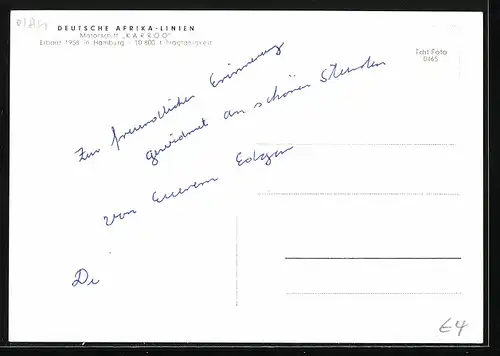 DEUTSCHE AFRIKA-LINIEN
Motorschiff „KARROO"
Erbaut 1958 in Hamburg - 10 800 t Tragfähigkeit
Echt Foto
Zur freundlichen Erinnerung
gewidmet an schöne Stunden
von Eurem
De
€4